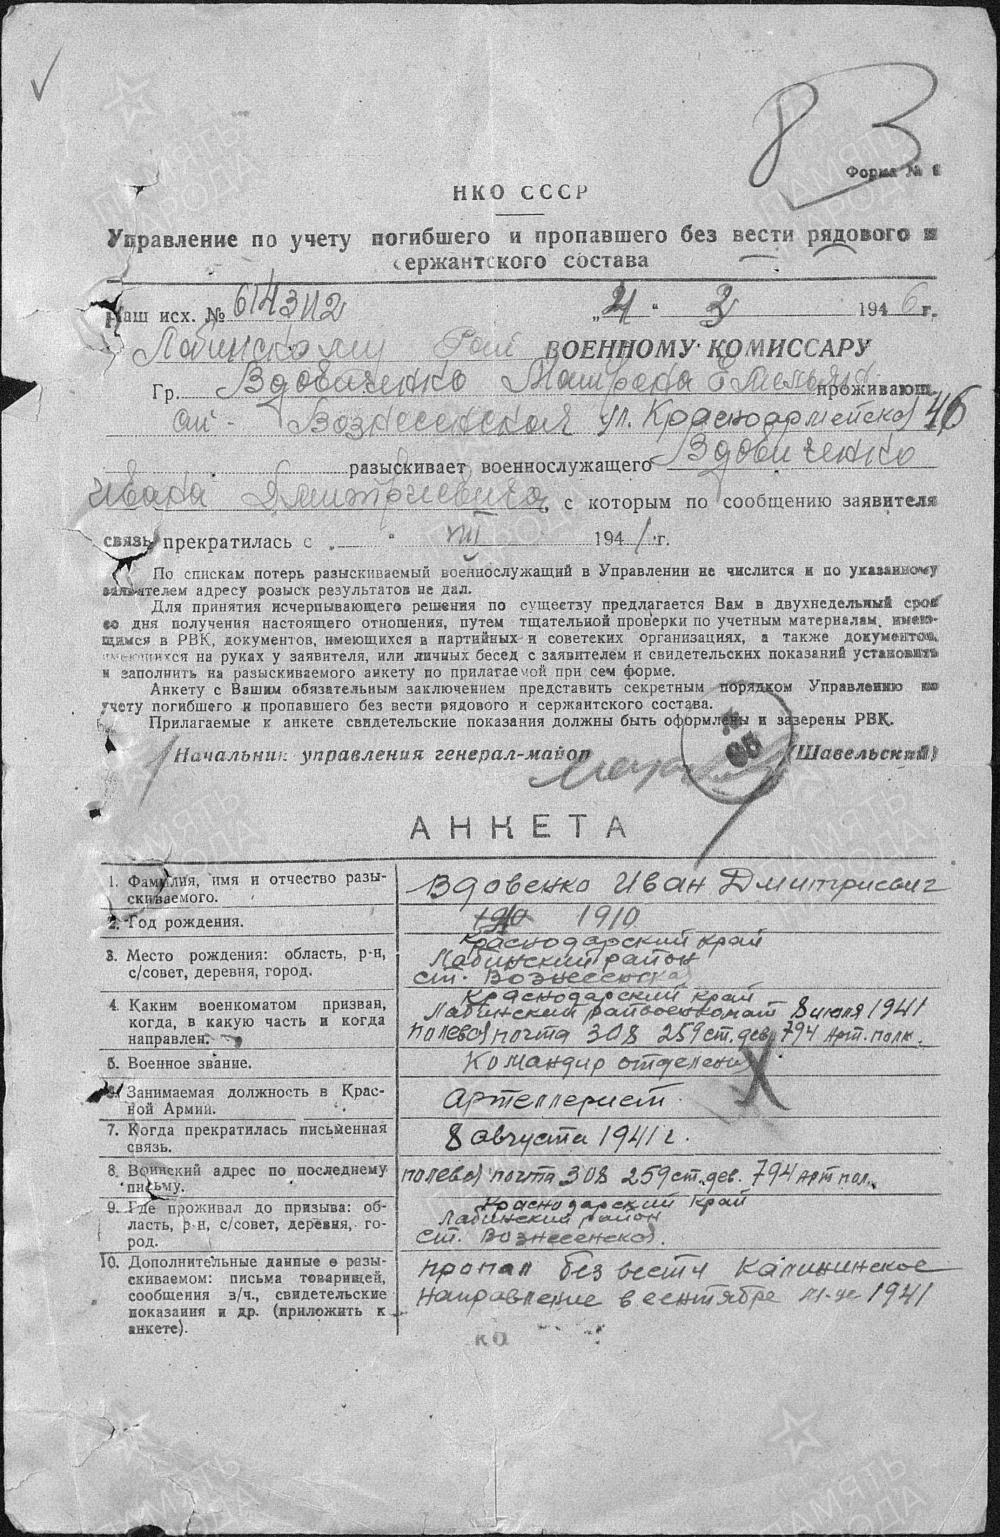 83
Форма № 1
НКО СССР
Управление по учету погибшего и пропавшего без вести рядового и
сержантского состава
Наш исх. № 614312 „21“ 3 1946 г.
Лабинскому Рай ВОЕННОМУ КОМИССАРУ
Гр. Вдовиченко Матрена проживающ.
Вознесенская ул. Красноармейская 46
разыскивает военнослужащего Вдовиченко
Ивана Дмитриевича, с которым по сообщению заявителя
связь прекратилась с „ “ VIII 1941 г.
По спискам потерь разыскиваемый военнослужащий в Управлении не числится и по указанному
заявителем адресу розыск результатов не дал.
Для принятия исчерпывающего решения по существу предлагается Вам в двухнедельный срок
со дня получения настоящего отношения, путем тщательной проверки по учетным материалам, имею-
щимся в РВК, документов, имеющихся в партийных и советских организациях, а также документов,
имеющихся на руках у заявителя, или личных бесед с заявителем и свидетельских показаний установить
и заполнить на разыскиваемого анкету по прилагаемой при сем форме.
Анкету с Вашим обязательным заключением представить секретным порядком Управлению по
учету погибшего и пропавшего без вести рядового и сержантского состава.
Прилагаемые к анкете свидетельские показания должны быть оформлены и заверены РВК.
Начальник управления генерал-майор (Шавельский)
АНКЕТА
1. Фамилия, имя и отчество разы-
скиваемого.
Вдовенко Иван Дмитриевич
2. Год рождения.
1910 1910
3. Место рождения: область, р-н,
с/совет, деревня, город.
Краснодарский край
Лабинский район
ст. Вознесенская
4. Каким военкоматом призван,
когда, в какую часть и когда
направлен.
Краснодарский край
Лабинский райвоенкомат 8 июля 1941
полевой почта 308 259 ст. дев. 794 Арт. полк.
5. Военное звание.
Командир отделения
6. Занимаемая должность в Крас-
ной Армии.
Артеллерист
7. Когда прекратилась письменная
связь.
8 августа 1941 г.
8. Воинский адрес по последнему
письму.
полевой почта 308 259 ст. дев. 794 Арт пол.
9. Где проживал до призыва: об-
ласть, р-н, с/совет, деревня, го-
род.
Краснодарский край
Лабинский район
ст. Вознесенской
10. Дополнительные данные о разы-
скиваемом: письма товарищей,
сообщения в/ч., свидетельские
показания и др. (приложить к
анкете).
пропал без вести Калининское
направление в сентябре м-це 1941
ПАМЯТЬ НАРОДА